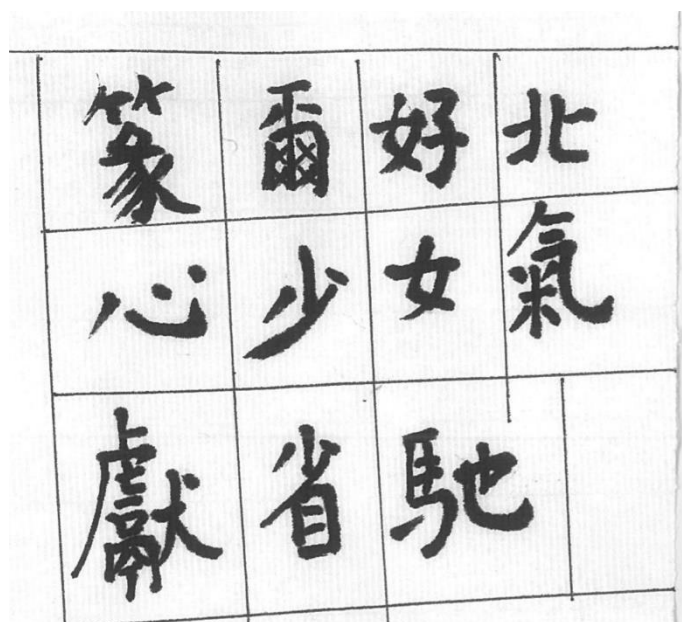 北氣
好女馳
爾少省
篆心獻